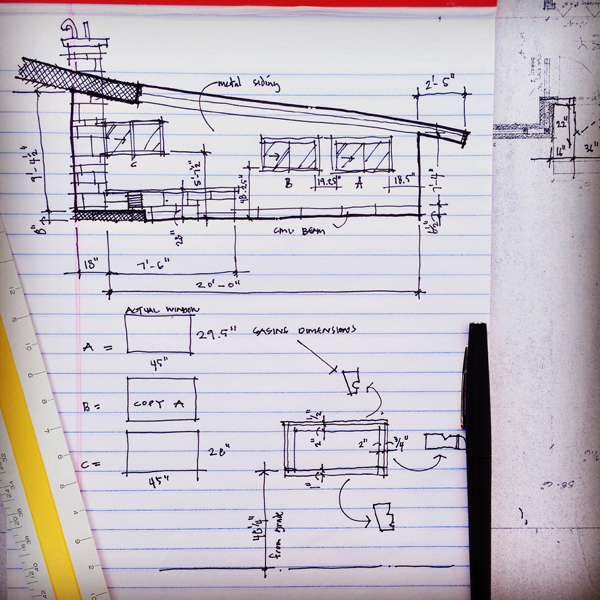 2'-5"
metal siding
9'-4½"
C
5'-1½"
48.25"
B
19.25"
A
18.5"
7'-4"
8"
28"
CMU BEAM
6½"
18"
7'-6"
20'-0"
22"
16"
36"
ACTUAL WINDOW
A =
29.5"
45"
CASING DIMENSIONS
B =
COPY A
C =
28"
45"
1½"
2"
2"
3/4"
1"
48¼"
from Brick